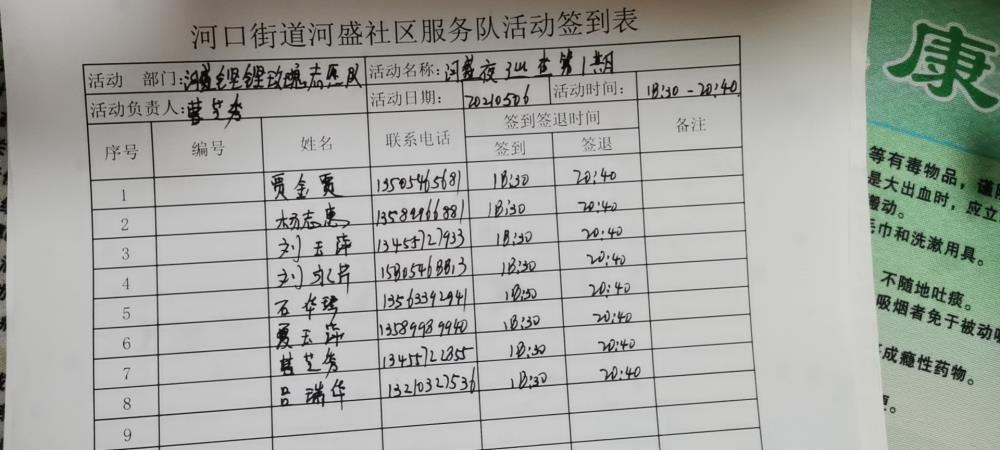 河口街道河盛社区服务队活动签到表
活动 部门:河盛铿铿玫瑰志愿队 活动名称:河盛夜巡查第1期
活动负责人:曹芝芳 活动日期: 20210506 活动时间: 18:30-20:40
序号 编号 姓名 联系电话 签到签退时间 备注
签到 签退
1 贾金贾 13505465681 18:30 20:40
2 杨志惠 18:30 20:40
3 刘玉萍 13455727933 18:30 20:40
4 刘 18:30 20:40
5 石华 13563392941 18:30 20:40
6 夏玉萍 13589989940 18:30 20:40
7 曹芝芳 13455722355 18:30 20:40
8 吕瑞华 13210327536 18:30 20:40
9
康
等有毒物品,谨
是大出血时,应立
搬动。
毛巾和洗漱用具。
不随地吐痰。
吸烟者免于被动
成瘾性药物。